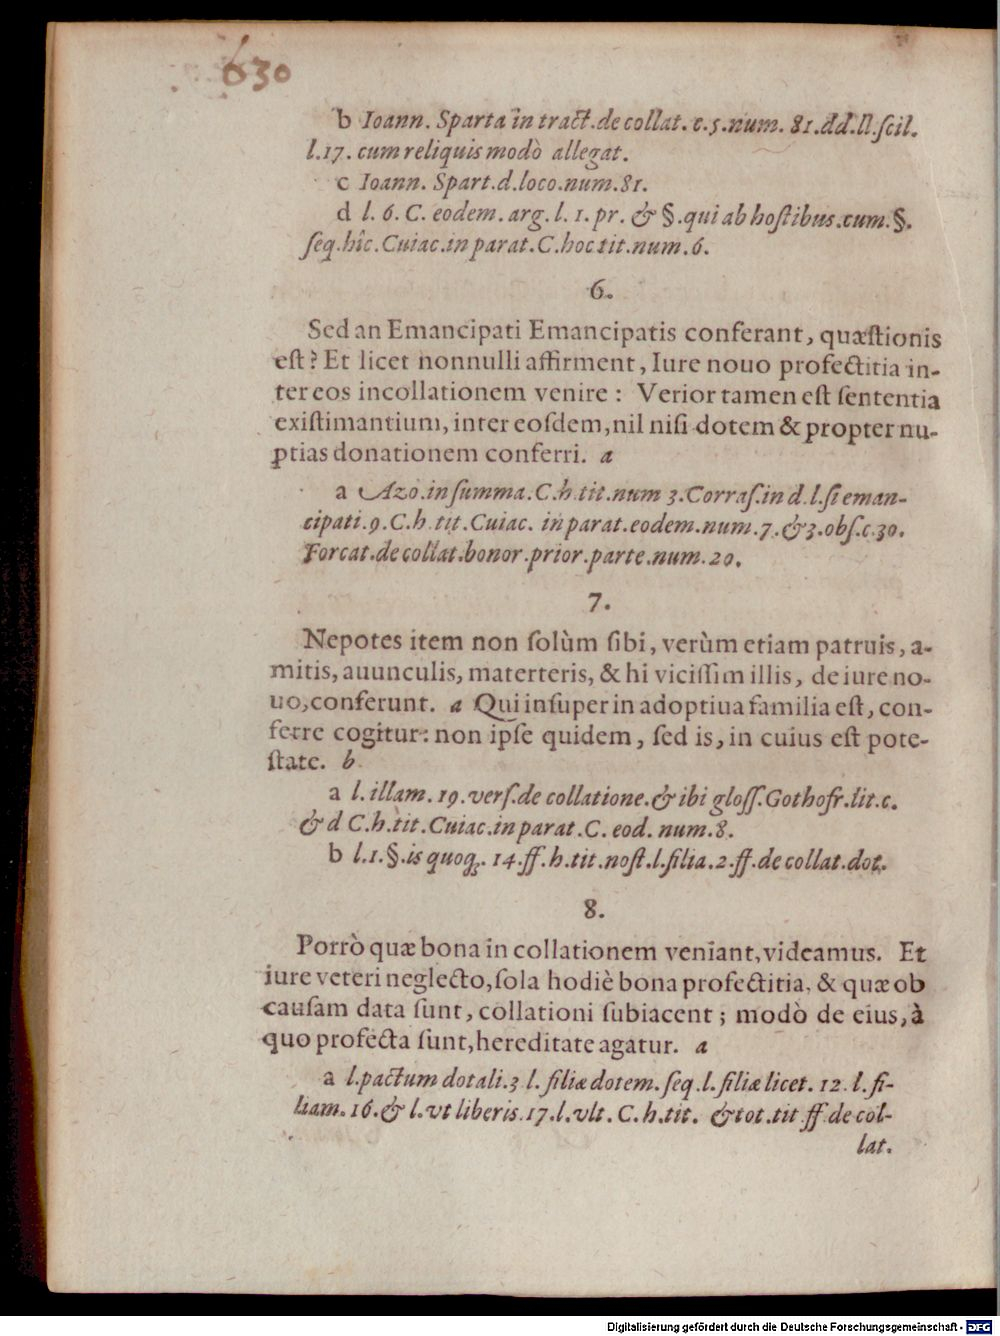 630
b Ioann. Sparta in tract.de collat. c.5.num. 81.dd.ll.scil.
l.17. cum reliquis modò allegat.
c Ioann. Spart.d.loco.num.81.
d l. 6. C. eodem. arg. l. 1. pr. & §.qui ab hostibus.cum.§.
seq.hîc.Cuiac.in parat.C.hoc tit.num.6.
6.
Sed an Emancipati Emancipatis conferant, quæstionis
est? Et licet nonnulli affirment, Iure nouo profectitia in-
ter eos incollationem venire : Verior tamen est sententia
existimantium, inter eosdem, nil nisi dotem & propter nu-
ptias donationem conferri. a
a Azo.in summa.C.h.tit.num 3.Corras.in d.l.si eman-
cipati.9.C.h.tit.Cuiac. in parat.eodem.num.7.&3.obs.c.30.
Forcat.de collat.bonor.prior.parte.num.20.
7.
Nepotes item non solùm sibi, verùm etiam patruis, a-
mitis, auunculis, materteris, & hi vicissim illis, de iure no-
uo,conferunt. a Qui insuper in adoptiua familia est, con-
ferre cogitur: non ipse quidem, sed is, in cuius est pote-
state. b
a l. illam. 19.vers.de collatione.& ibi gloss.Gothofr.lit.c.
& d C.h.tit.Cuiac.in parat.C. eod. num.8.
b l.1.§.is quoq;. 14.ff.h.tit.nost.l.filia.2.ff.de collat.dot.
8.
Porrò quæ bona in collationem veniant,videamus. Et
iure veteri neglecto,sola hodiè bona profectitia, & quæ ob
causam data sunt, collationi subiacent ; modò de eius, à
quo profecta sunt,hereditate agatur. a
a l.pactum dotali.3 l.filiæ dotem.seq.l.filiæ licet. 12.l.fi-
liam.16.& l.vt liberis.17.l.vlt. C.h.tit. & tot.tit ff.de col-
lat.
Digitalisierung gefördert durch die Deutsche Forschungsgemeinschaft - DFG